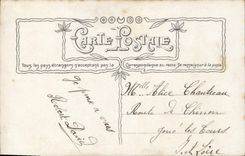 CARTE POSTALE
Tous les pays étrangers n'acceptent pas la Correspondance au recto. Se renseigner à la poste
Je pense à vous
Robert David
Mlle Alice Chanteau
Route de Chinon
Joué les Tours
I. et Loire